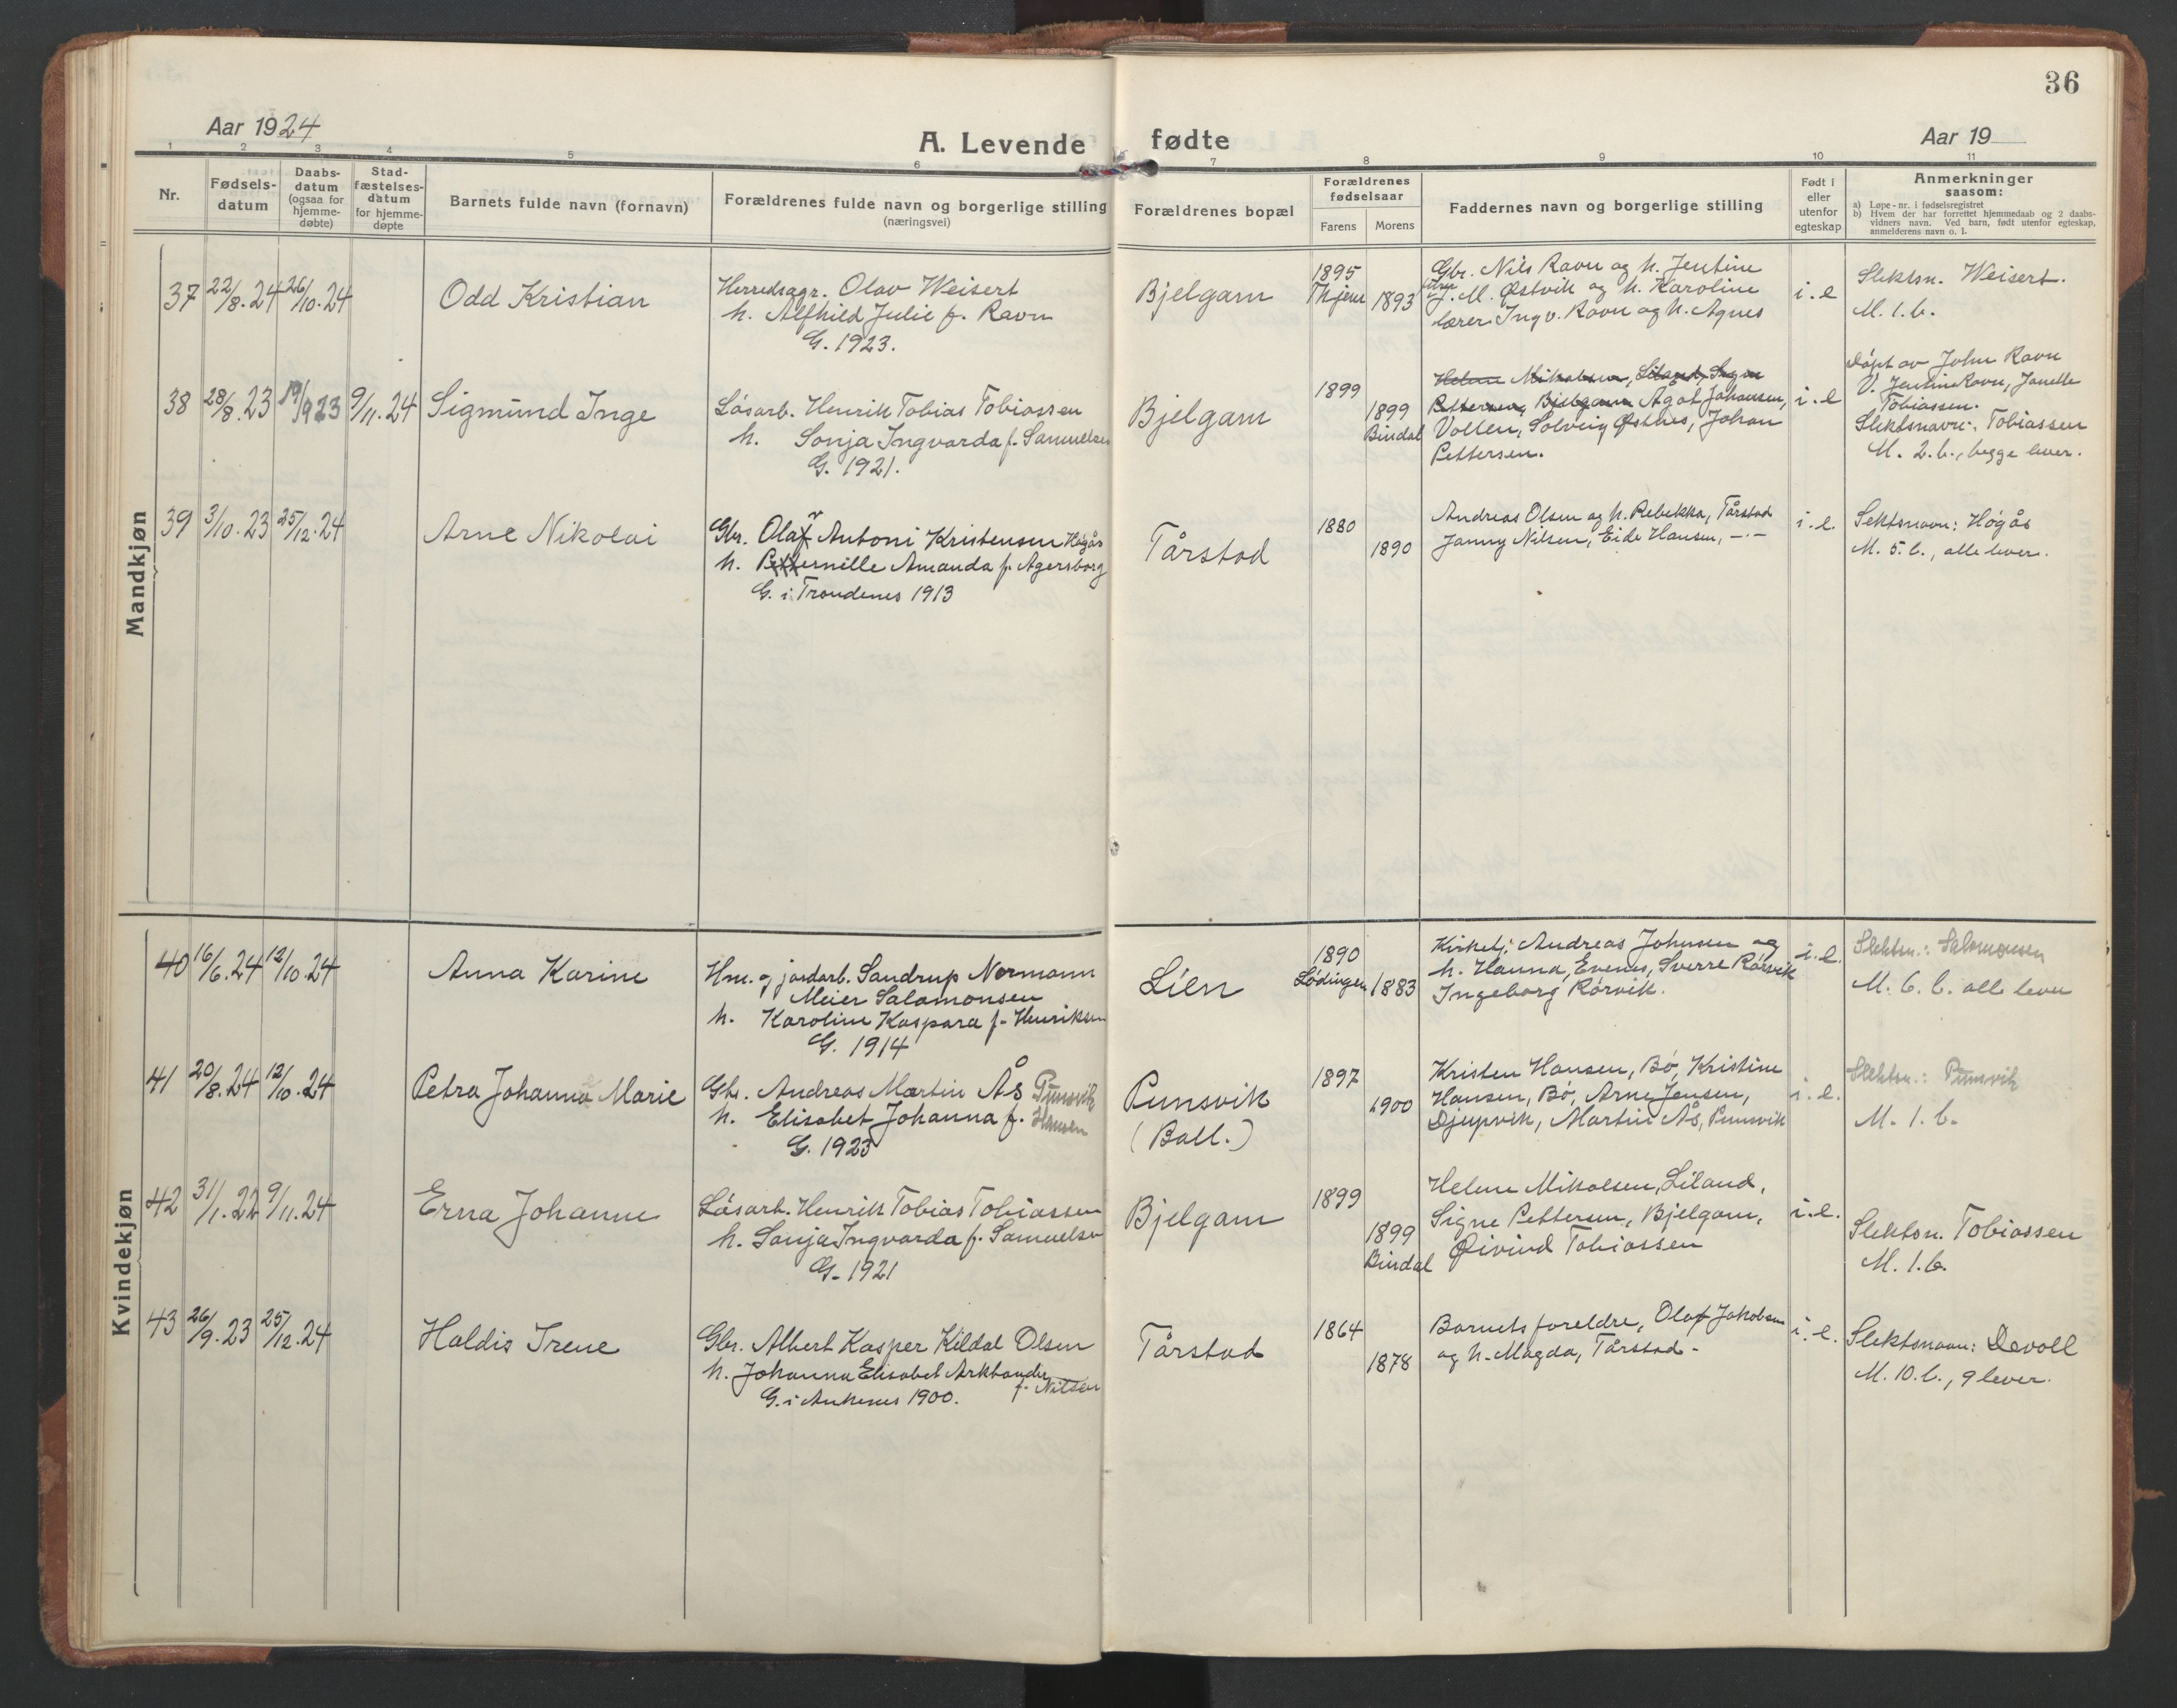 36
Aar 1924
A. Levende fødte
Aar 19
1 2 3 4 5 6 7 8 9 10 11
Nr.
Fødsels-
datum
Daabs-
datum
(ogsaa for
hjemme-
døbte)
Stad-
fæstelses-
datum
for hjemme-
døpte
Barnets fulde navn (fornavn)
Forældrenes fulde navn og borgerlige stilling
(næringsvei)
Forældrenes bopæl
Forældrenes
fødselsaar
Farens Morens
Faddernes navn og borgerlige stilling
Født i
eller
utenfor
egteskap
Anmerkninger
saasom:
a) Løpe-nr. i fødselsregistret
b) Hvem der har forrettet hjemmedaab og 2 daabs-
vidners navn. Ved barn, født utenfor egteskap,
anmelderens navn o. l.
Mandkjøn
37 22/8.24 26/10.24
Odd Kristian
Herredsagr. Olav Weisert
h. Alfhild Julie f. Ravn
G. 1923.
Bjelgam
1895
1893
Gbr. Nils Ravn og h. Jentine
J. M. Østvik og h. Karoline
lærer Ingv. Ravn og h. Agnes
i.e
Slektsn. Weisert.
M. 1. b.
38 28/8.23 19/9 23 9/11.24
Sigmund Inge
Løsarb. Henrik Tobias Tobiassen
h. Sonja Ingvarda f. Samuelsen
G. 1921.
Bjelgam
1899
1899
Bindal
Helene Mikalsen, Liland, Signe
Pettersen, Bjelgam Ågot Johansen,
Vollen, Solveig Østnes, Johan
Pettersen.
i.e
Døpt av John Ravn
V. Jentine Ravn, Janelle
Tobiassen.
Slektsnavn: Tobiassen
M. 2. b., begge lever.
39 3/10.23 25/12.24
Arne Nikolai
Gbr. Olav Antoni Kristensen Høgås
h. Pernille Amanda f. Agersborg
G. i Trondenes 1913
Tårstad
1880
1890
Andreas Olsen og h. Rebekka, Tårstad
Janny Nilsen, Eide Hansen, -.-
i.e.
Sektsnavn: Høgås
M. 5. b., alle lever.
Kvindekjøn
40 16/6.24 12/10.24
Anna Karine
Hm. og jordarb. Sandrup Normann
Meier Salamonsen
h. Karoline Kaspara f. Henriksen
G. 1914
Lien
1890
Lødingen 1883
Kirketj. Andreas Johnsen og
h. Hanna, Evenes, Sverre Rørvik
Ingeborg Rørvik.
i.e.
Slektsn.: Salamonsen
M. 6. b. alle lever
41 20/8.24 12/10.24
Petra Johanna Marie
Gbr. Andreas Martin Ås Punsvik
h. Elisabet Johanna f. Hansen
G. 1923
Punsvik
(Ball.)
1897
1900
Kristen Hansen, Bø, Kristine
Hansen, Bø, Arne Jensen,
Djupvik, Martin Ås, Punsvik
i.e.
Slektsn.: Punsvik
M. 1. b.
42 31/1.22 9/11.24
Erna Johanne
Løsarb. Henrik Tobias Tobiassen
h. Sonja Ingvarda f. Samuelsen
G. 1921
Bjelgam
1899
1899
Bindal
Helene Mikalsen, Liland,
Signe Pettersen, Bjelgam,
Øivind Tobiassen
i.e.
Slektsn. Tobiassen
M. 1. b.
43 26/9.23 25/12.24
Haldis Irene
Gbr. Albert Kasper Kildal Olsen
h. Johanna Elisabet Arktander
f. Nilsen
G. i Ankenes 1900.
Tårstad
1864
1878
Barnets foreldre, Olaf Jakobsen
og h. Magda, Tårstad.
i.e.
Slektsnavn: Devoll
M. 10. b., 9 lever.